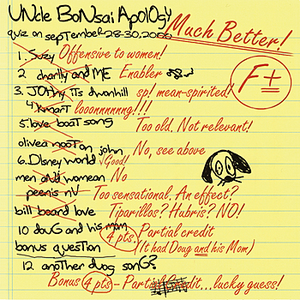 UNcle BoNsai Apology
quiz on september 28-30, 2006
Much Better!
F±
1. Suzy Offensive to women!
2. charly and ME Enabler
3. JOhNy ITs dwnhill sp! mean-spirited!
4. KmarT looonnnnnng!!!
5. love boat song Too old. Not relevant!
olivea nooTon john No, see above
6. Disney world √Good!
men and women No
peenis nV Too sensational. An effect?
bill board love Tiparillos? Hubris? NO!
10 douG and his mom 4 pts. Partial credit
(It had Doug and his Mom)
bonus question
12. another doug sonG?
Bonus 4 pts - Partial Credit...lucky guess!